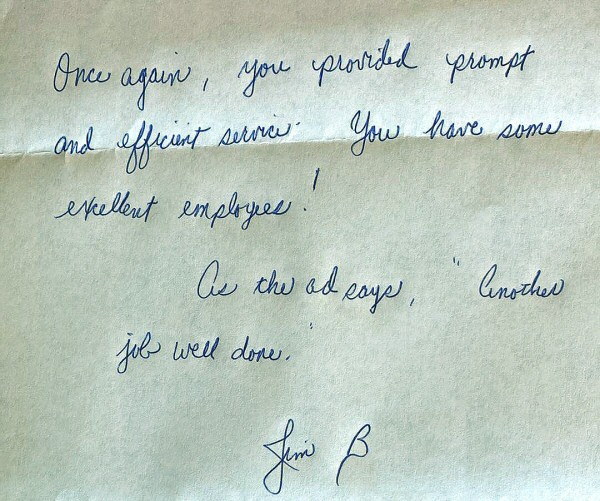 Once again, you provided prompt
and efficient service. You have some
excellent employees!
As the ad says, "Another
job well done."
Jim B